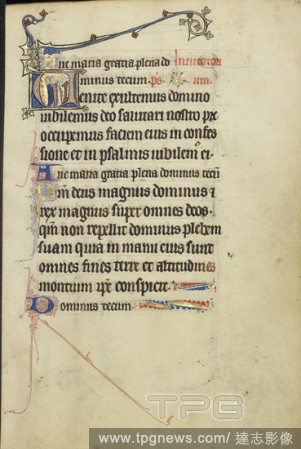 Aue maria gratia plena do Inuitatori
ominus tecum. ps.
Uenite exultemus domino
iubilemus deo salutari nostro pre
occupemus faciem eius in confes
sione et in psalmis iubilem ei.
Aue maria gratia plena dominus tecū
Qm̄ deus magnus dominus et
rex magnus super omnes deos.
qm̄ non repellit dominus plebem
suam quia in manu eius sunt
omnes fines terre et altitudines
montium ipe conspicit.
Dominus tecum
TPG
www.tpgnews.com/達志影像